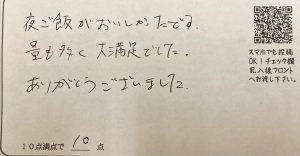 夜ご飯がおいしかったです。
量も多く大満足でした。
ありがとうございました。
スマホでも投稿
OK！チェック欄
記入後フロント
へお渡し下さい。
10点満点で 10 点